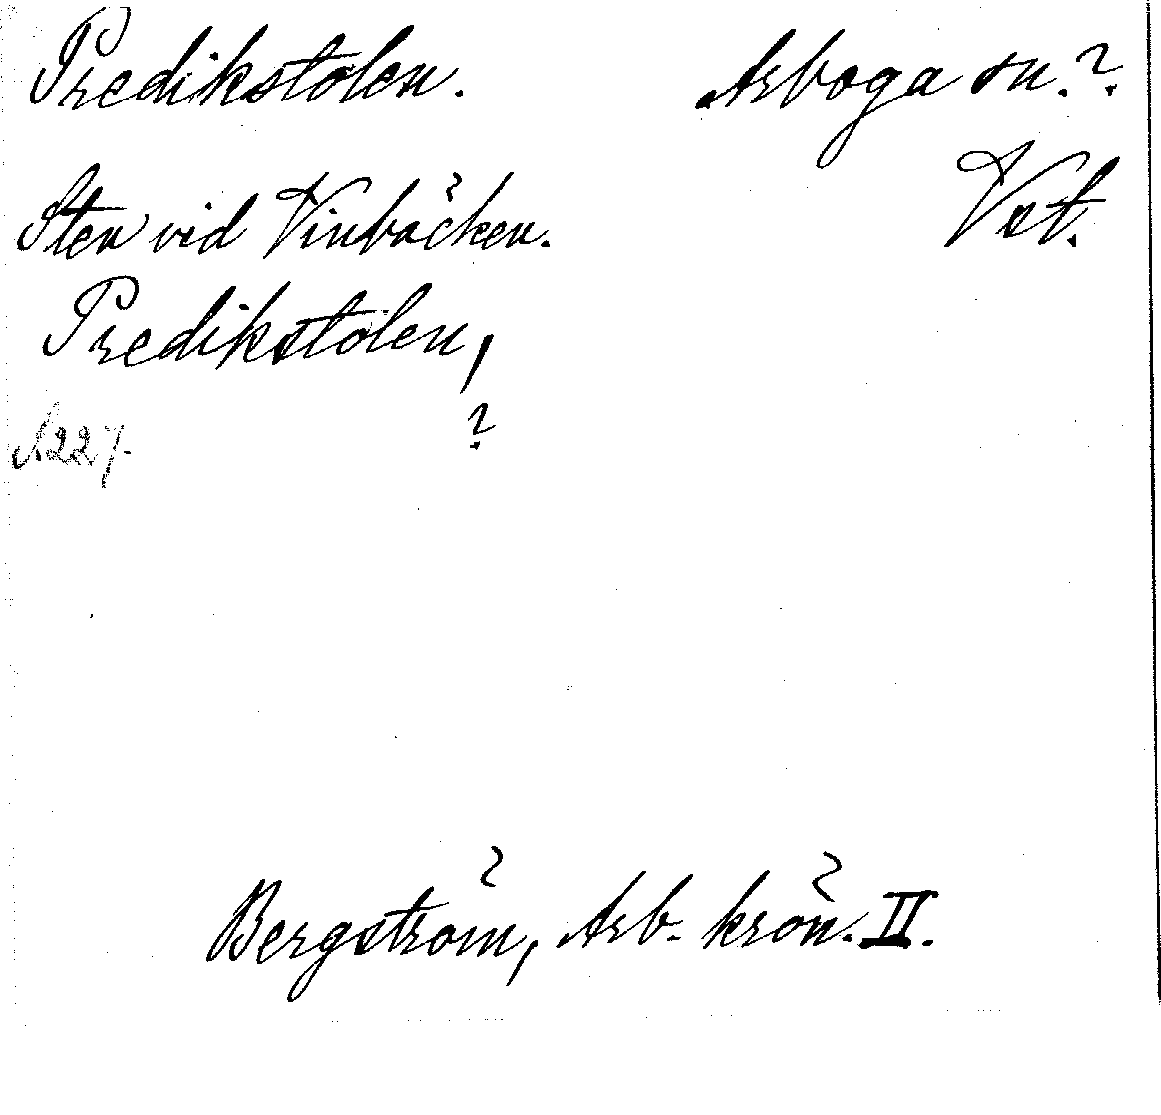 Predikstolen. Arboga sn.?
Vst.
Sten vid Vinbäcken.
Predikstolen,
?
S. 227.
Bergström, Arb. krön. II.